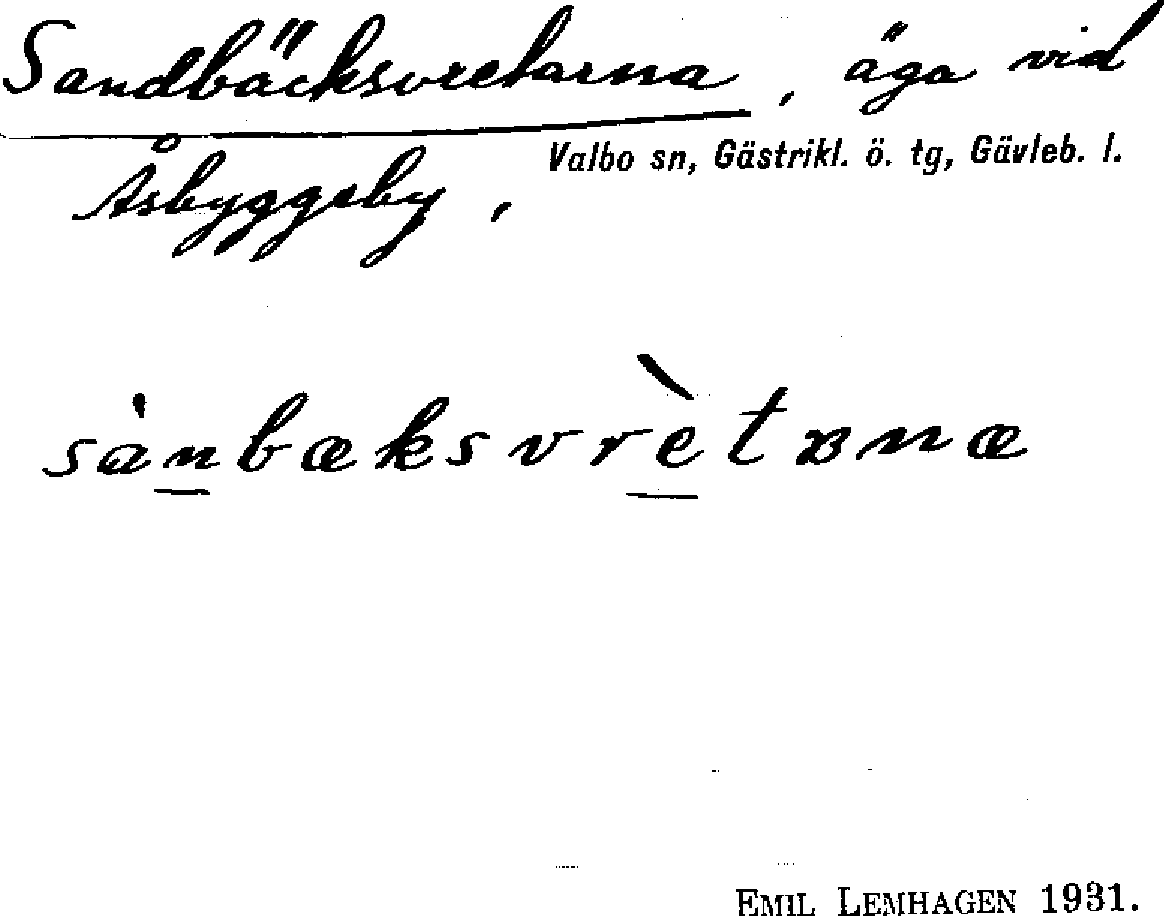 Sandbäcksvretarna, äga vid
Åsbyggeby,
Valbo sn, Gästrikl. ö. tg, Gävleb. l.
sànbæksvrètᴃnæ
EMIL LEMHAGEN 1931.